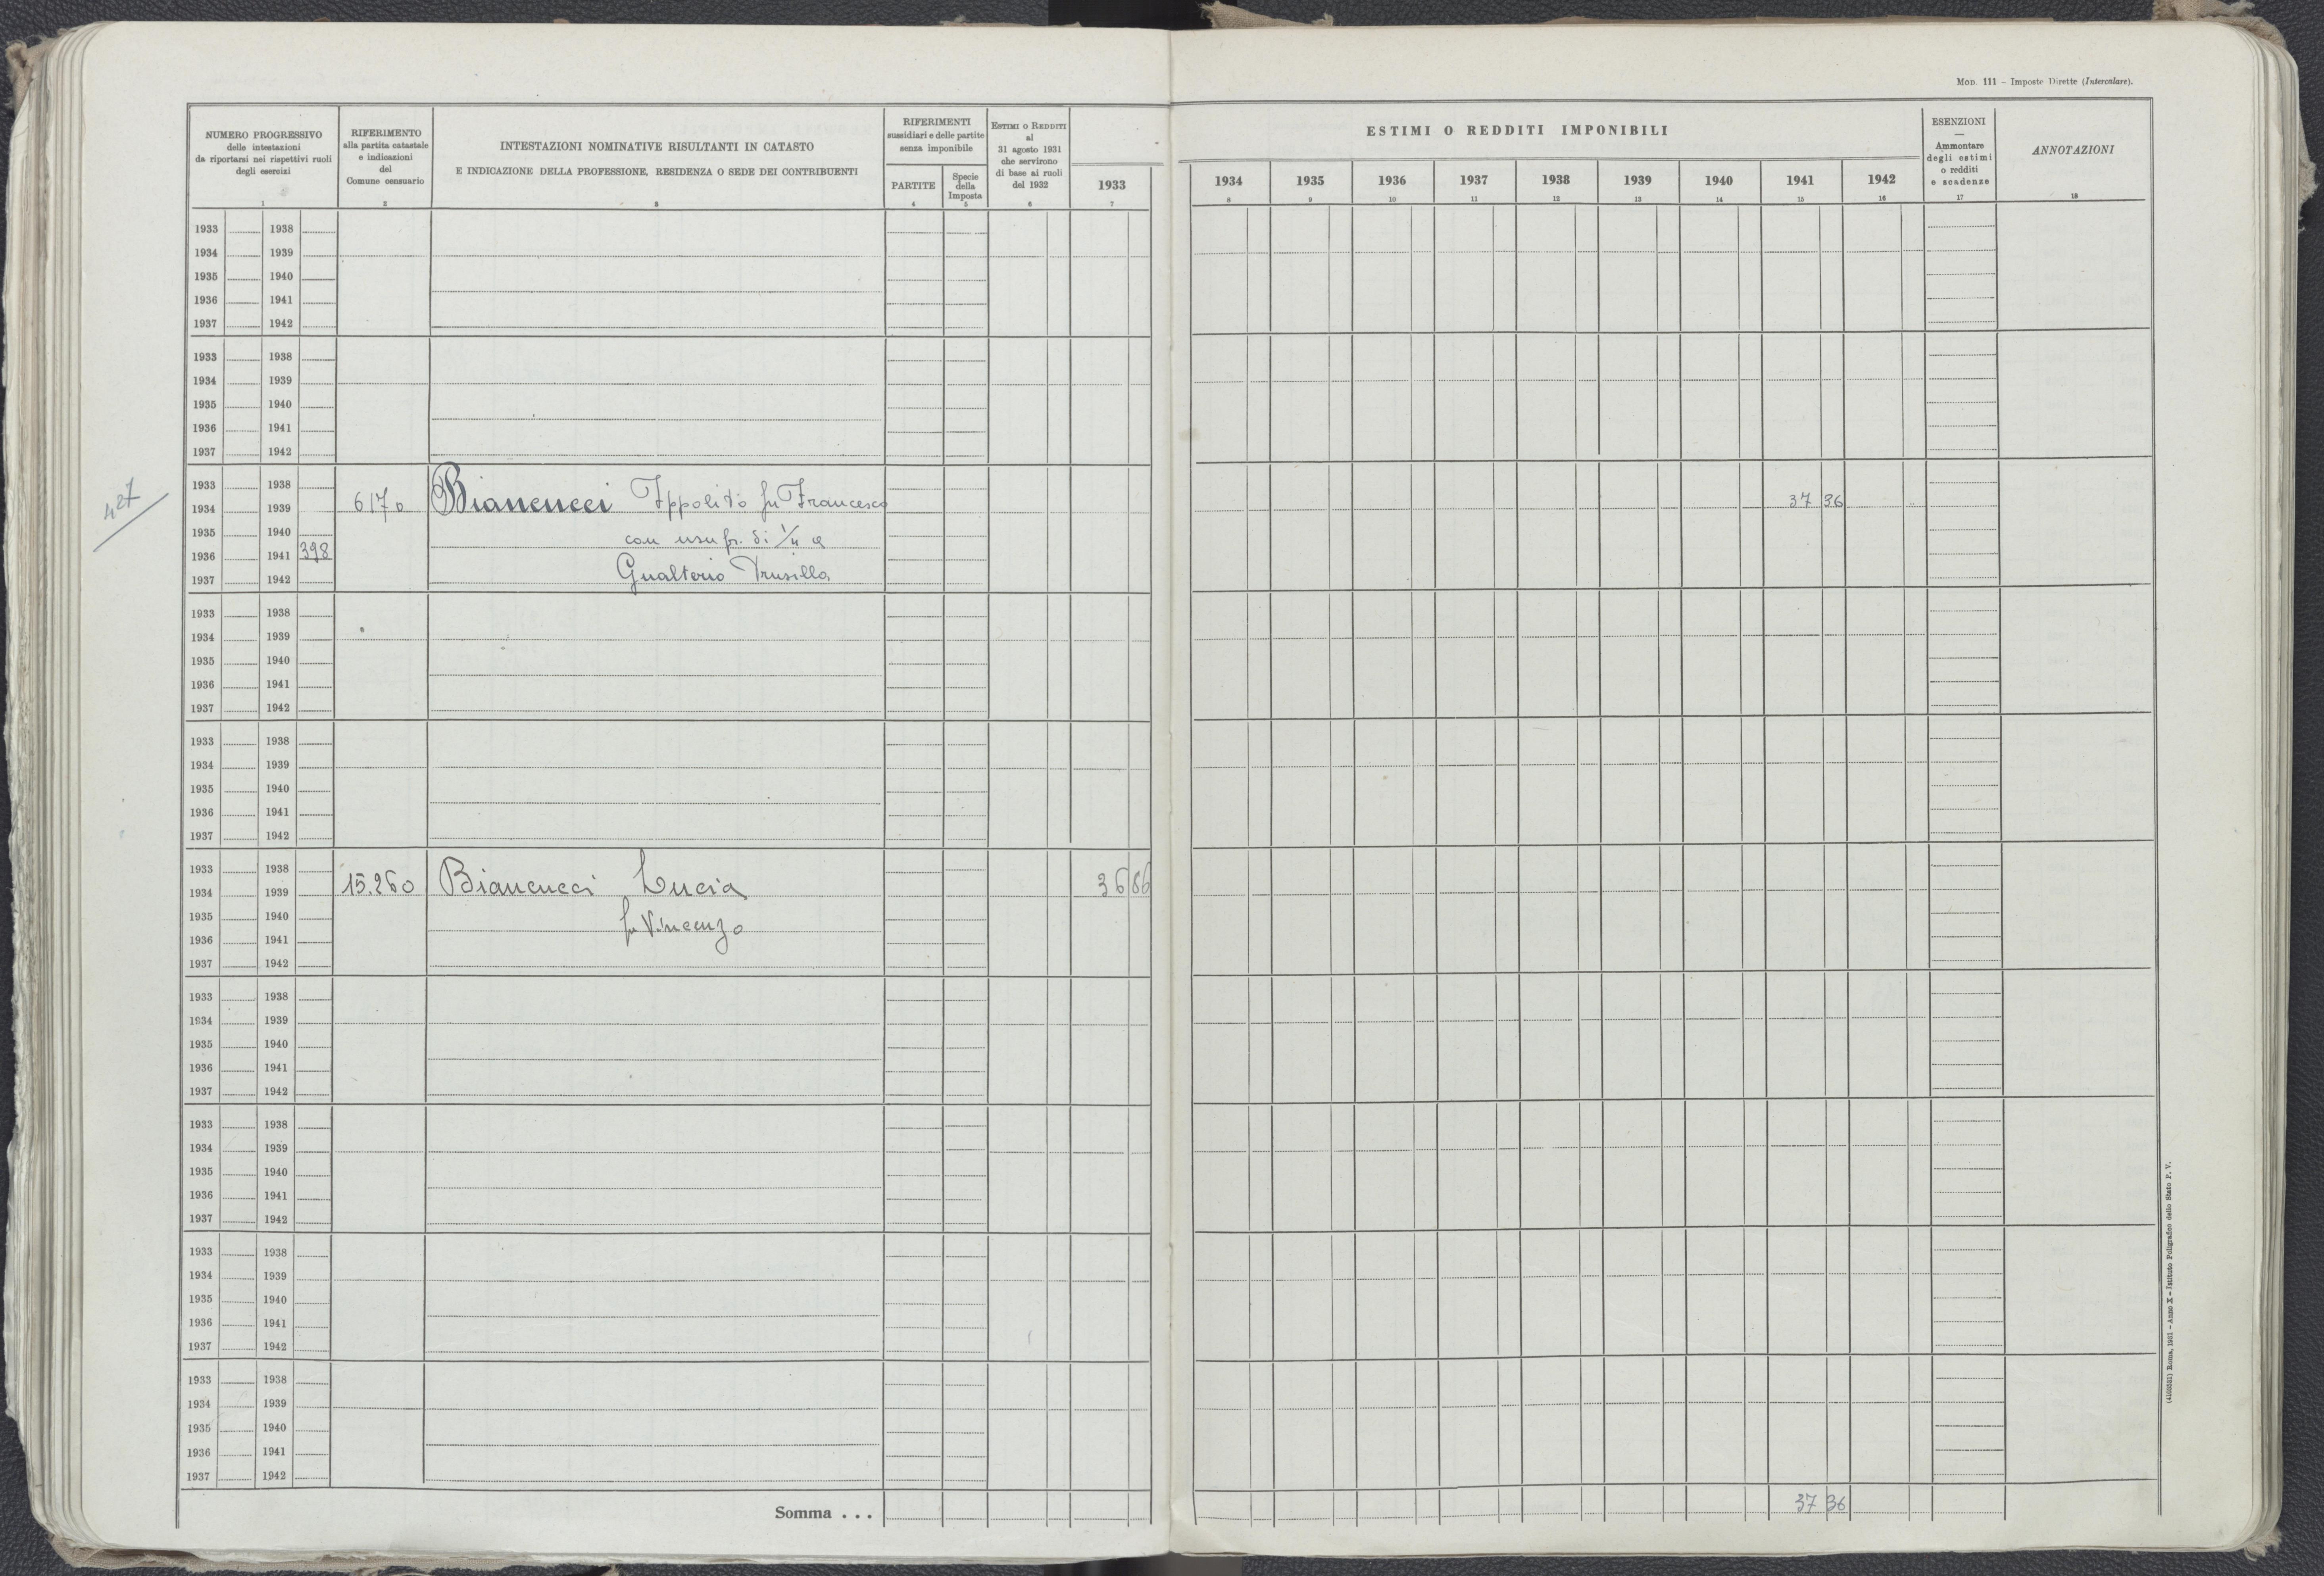 Mod. 111 - Imposte Dirette (Intercalare).
NUMERO PROGRESSIVO
delle intestazioni
da riportarsi nei rispettivi ruoli
degli esercizi
1
RIFERIMENTO
alla partita catastale
e indicazioni
del
Comune censuario
2
INTESTAZIONI NOMINATIVE RISULTANTI IN CATASTO
E INDICAZIONE DELLA PROFESSIONE, RESIDENZA O SEDE DEI CONTRIBUENTI
3
RIFERIMENTI
sussidiari e delle partite
senza imponibile
PARTITE
4
Specie
della
Imposta
5
ESTIMI O REDDITI
al
31 agosto 1931
che servirono
di base ai ruoli
del 1932
6
1933
7
ESTIMI O REDDITI IMPONIBILI
1934 1935 1936 1937 1938 1939 1940 1941 1942
8 9 10 11 12 13 14 15 16
ESENZIONI
—
Ammontare
degli estimi
o redditi
e scadenze
17
ANNOTAZIONI
18
1933 1938
1934 1939
1935 1940
1936 1941
1937 1942
1933 1938
1934 1939
1935 1940
1936 1941
1937 1942
427
1933 1938
1934 1939 6170 Biancucci Ippolito fu Francesco 37 36
1935 1940 con usufr. di 1/4 a
1936 1941 398
1937 1942 Gualterio Drusilla
1933 1938
1934 1939
1935 1940
1936 1941
1937 1942
1933 1938
1934 1939
1935 1940
1936 1941
1937 1942
1933 1938
1934 1939 15.260 Biancucci Lucia 36 86
1935 1940 fu Vincenzo
1936 1941
1937 1942
1933 1938
1934 1939
1935 1940
1936 1941
1937 1942
1933 1938
1934 1939
1935 1940
1936 1941
1937 1942
1933 1938
1934 1939
1935 1940
1936 1941
1937 1942
1933 1938
1934 1939
1935 1940
1936 1941
1937 1942
Somma . . . 37 36
(4103531) Roma, 1931 - Anno X - Istituto Poligrafico dello Stato P. V.